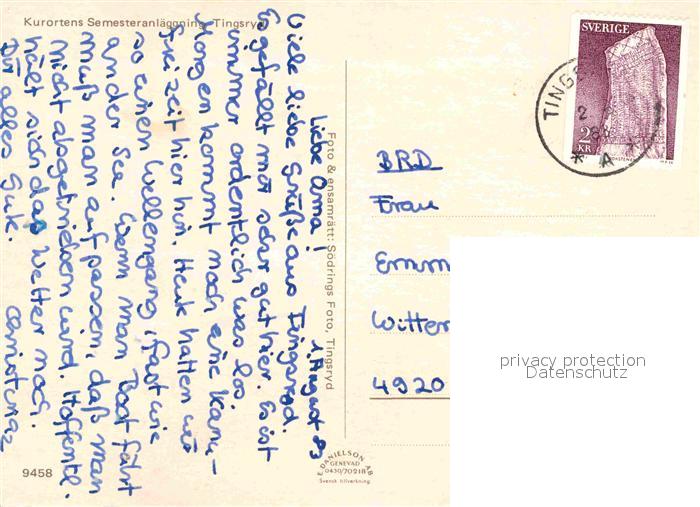 Kurortens Semesteranläggning, Tingsryd
1. August 83
Liebe Oma!
Viele liebe Grüße aus Tingsryd.
Es gefällt mir sehr gut hier. Es ist
immer ordentlich was los.
Morgen kommt noch eine Kanu-
freizeit hier hin. Heute hatten wir
so einen Wellengang, fast wie
an der See. Wenn man Boot fährt
muß man aufpassen, daß man
nicht abgetrieben wird. Hoffentl.
hält sich das Wetter noch.
Dir alles Gute.
Foto & ensamrätt: Södrings Foto, Tingsryd
SVERIGE
28
KR
TINGS
2
83
* A
BRD
Frau
Emm
Witte
4920
privacy protection
Datenschutz
9458
E. DANIELSON AB
GENEVAD
0430/70218
Svensk tillverkning